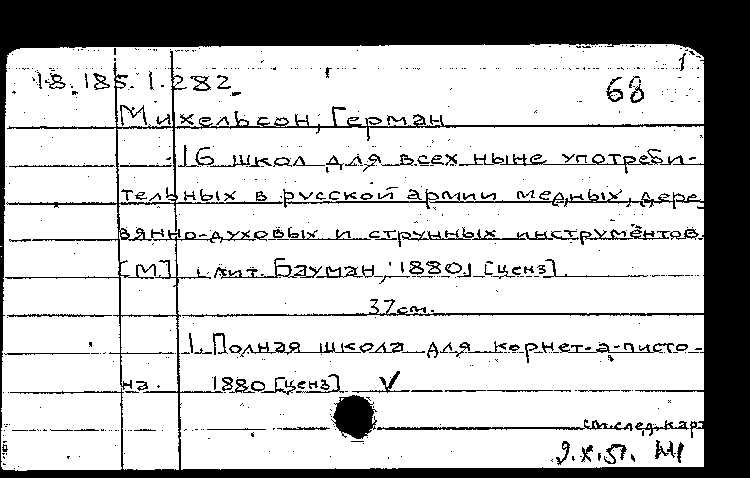 18.185.1.282
68
Михельсон, Герман
16 школ для всех ныне употреби-
тельных в русской армии медных, дере
вянно-духовых и струнных инструментов.
[М], лит. Бауман, 1880, [ценз].
37 см.
1. Полная школа для корнет-а-писто-
на. 1880 [ценз] V
см. след. карт
9.X.51.